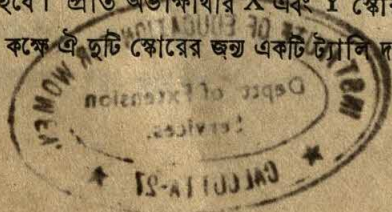 হবে। প্রতি অভীক্ষার্থীর X এবং Y স্কোর
কক্ষে ঐ দুটি স্কোরের জন্য একটি ট্যালি
OF EDUCATION
WOMEN
Deptt of Extension
Services.
CALCUTTA-27